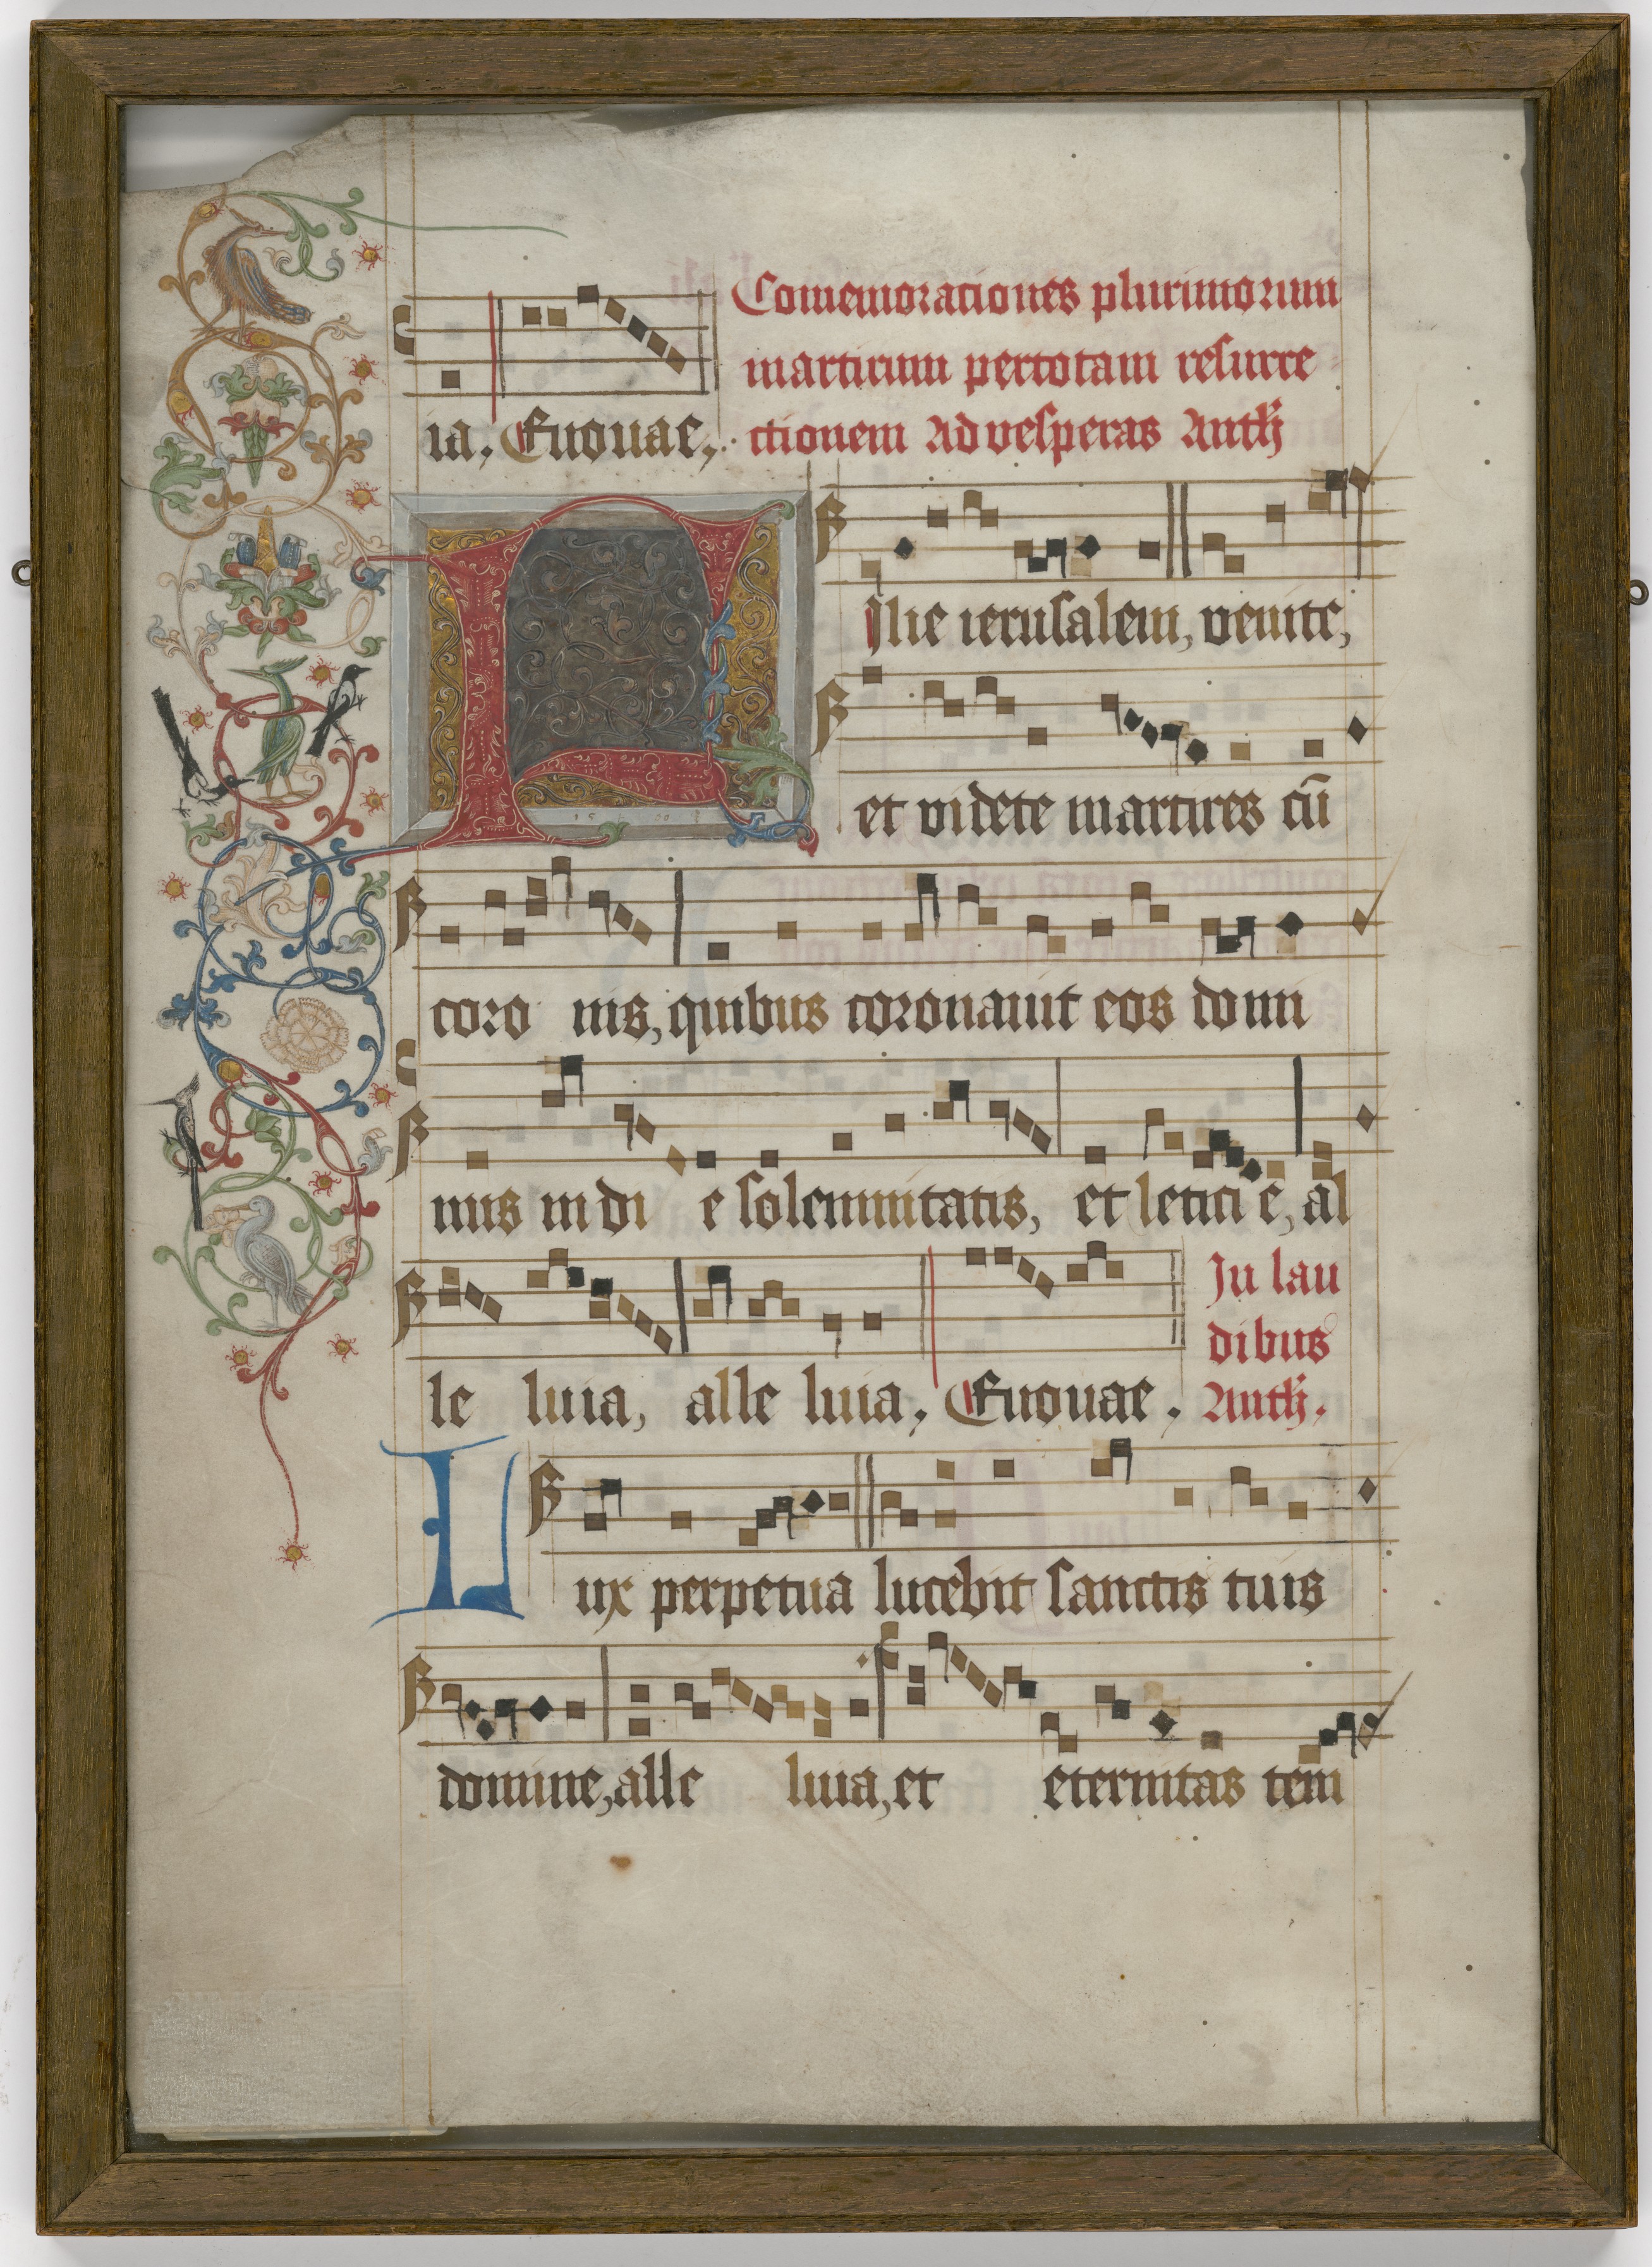 Comemorationes plurimorum
martirum per totam resurre
ia, Euouae, ctionem Ad vesperas Anth
Filie ierusalem, venite,
et videte martires cū
coro nis, quibus coronavit eos domi
nus in di e solemnitatis, et letici e, al
le luia, alle luia, Euouae.
In lau
dibus
Anth.
Lux perpetua lucebit sanctis tuis
domine, alle luia, et eternitas tem